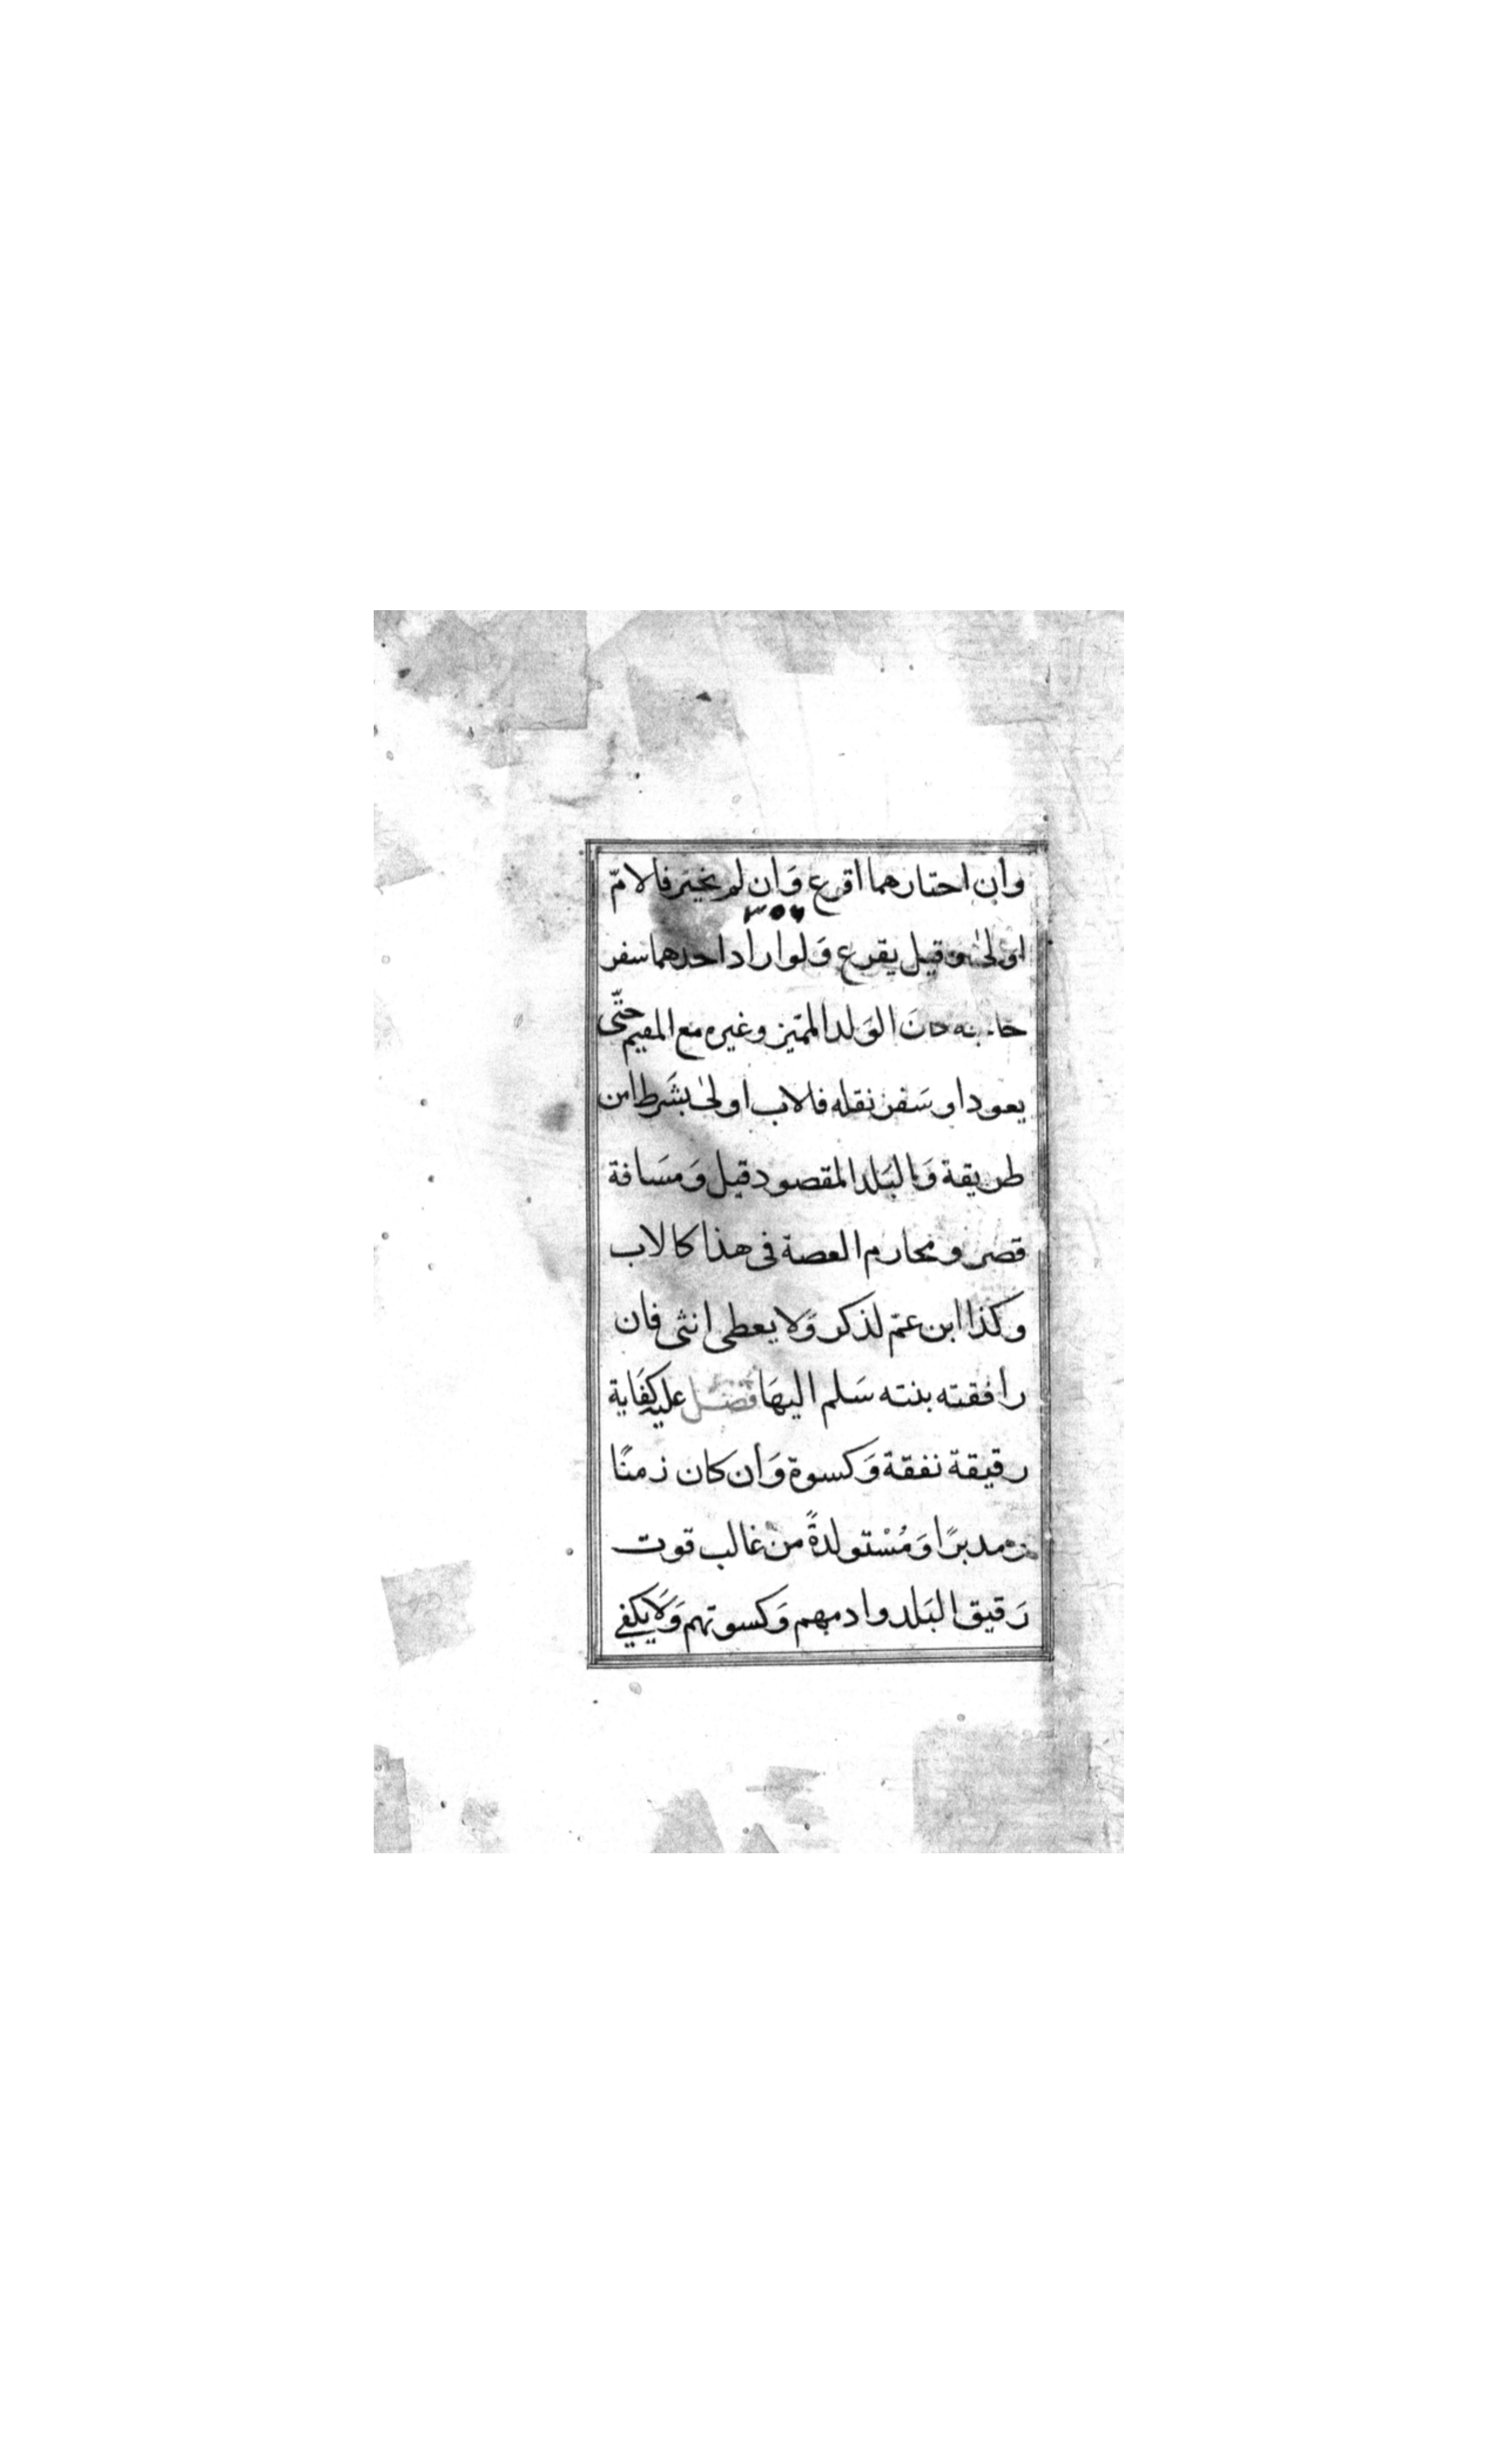 وأن احتارهما اقرع وَان لم يخير فالامّ
اولىٰ وقيل يقرع وَلو اراد احدهما سفر
كانَ الوَلد المميّز وغيره مع المقيم حتّى
يعود او سَفر نقله فالاب اولىٰ بشَرط امن
طريقة وَالبَلد المقصود قيل وَمسَافة
قصر ومحارم العصة فى هذا كالاب
وَكذا ابن عمّ لذكر وَلا يعطى انثى فان
رافقته بنته سَلم اليهَا فصل عليه كفَاية
رقيقة نفقة وَكسوة وَأن كان زمنًا
مدبرًا وَمُسْتولدةً من غالب قوت
رَقيق البَلد وادمهم وَكسوتهم وَلا يكفي